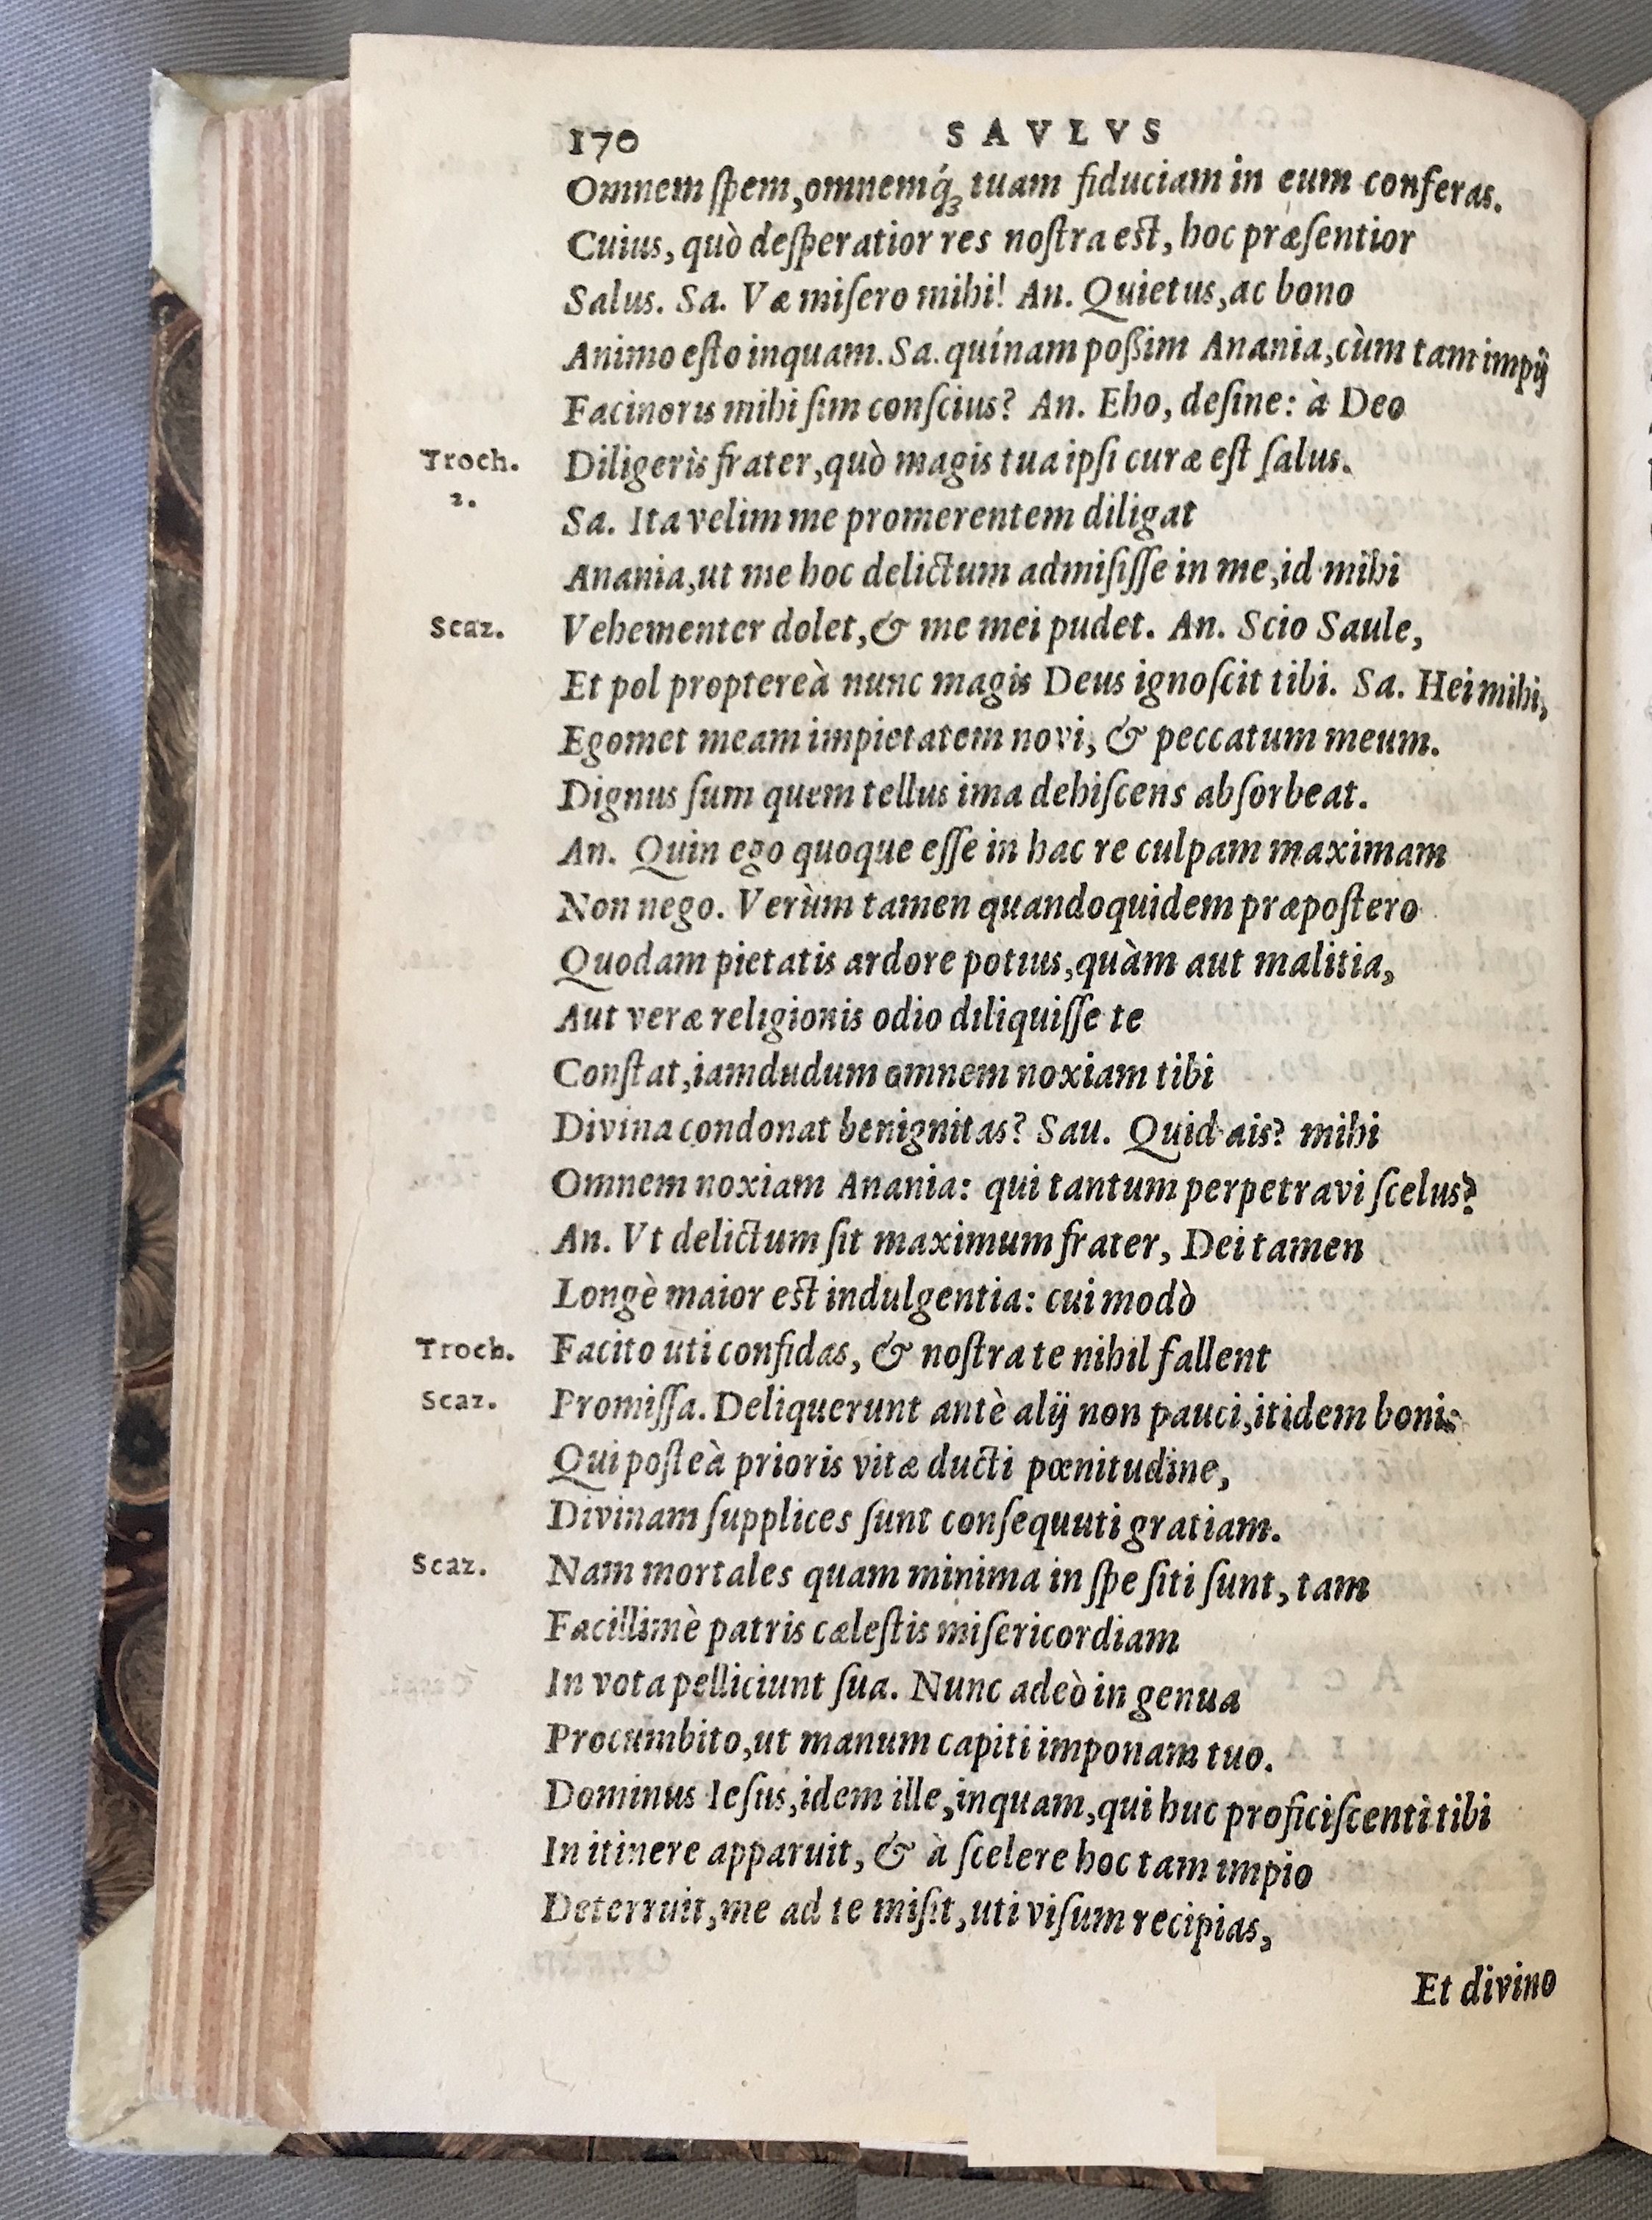 170 SAVLVS
Omnem ſpem, omnemq́ꝫ tuam fiduciam in eum conferas.
Cuius, quò deſperatior res noſtra eſt, hoc præſentior
Salus. Sa. Væ miſero mihi! An. Quietus, ac bono
Animo eſto inquam. Sa. quínam poßim Anania, cùm tam impij
Facinoris mihi ſim conſcius? An. Eho, deſine: à Deo
Troch. 2. Diligeris frater, quò magis tua ipſi curæ eſt ſalus.
Sa. Ita velim me promerentem diligat
Anania, ut me hoc delictum admiſiſſe in me, id mihi
Scaz. Vehementer dolet, & me mei pudet. An. Scio Saule,
Et pol proptereà nunc magis Deus ignoſcit tibi. Sa. Hei mihi,
Egomet meam impietatem novi, & peccatum meum.
Dignus ſum quem tellus ima dehiſcens abſorbeat.
An. Quin ego quoque eſſe in hac re culpam maximam
Non nego. Verùm tamen quandoquidem præpoſtero
Quodam pietatis ardore potius, quàm aut malitia,
Aut veræ religionis odio diliquiſſe te
Conſtat, iamdudum omnem noxiam tibi
Divina condonat benignitas? Sau. Quid ais? mihi
Omnem noxiam Anania: qui tantum perpetravi ſcelus?
An. Vt delictum ſit maximum frater, Dei tamen
Longè maior eſt indulgentia: cui modò
Troch. Facito uti confidas, & noſtra te nihil fallent
Scaz. Promiſſa. Deliquerunt antè alij non pauci, itidem bonis
Qui poſteà prioris vitæ ducti pœnitudine,
Divinam ſupplices ſunt conſequuti gratiam.
Scaz. Nam mortales quam minima in ſpe ſiti ſunt, tam
Facillimè patris cæleſtis miſericordiam
In vota pelliciunt ſua. Nunc adeò in genua
Procumbito, ut manum capiti imponam tuo.
Dominus Ieſus, idem ille, inquam, qui huc proficiſcenti tibi
In itinere apparuit, & à ſcelere hoc tam impio
Deterruit, me ad te miſit, uti viſum recipias,
Et divino